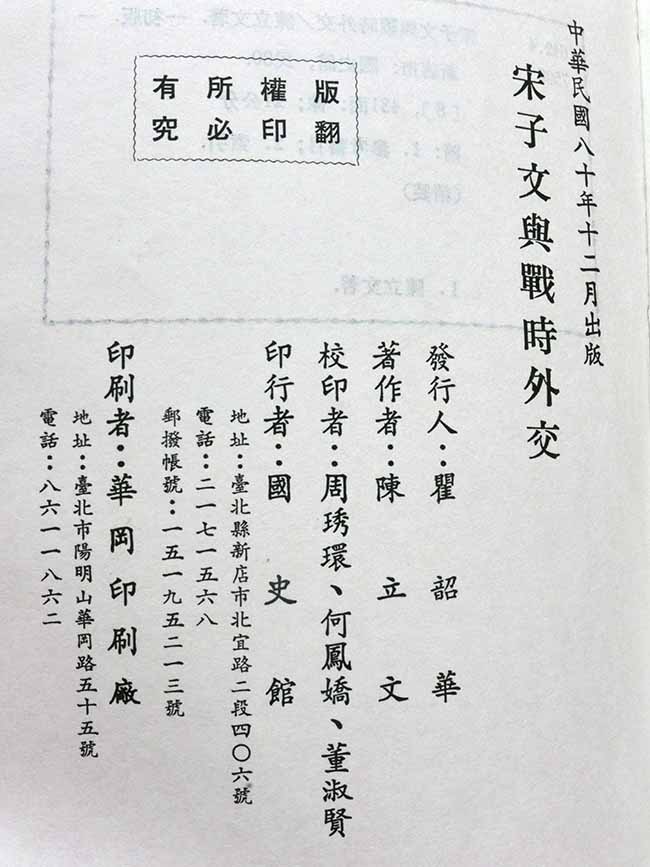 中華民國八十年十二月出版
宋子文與戰時外交
版權所有
翻印必究
發行人：瞿韶華
著作者：陳立文
校印者：周琇環、何鳳嬌、董淑賢
印行者：國史館
地址：臺北縣新店市北宜路二段四〇六號
電話：二一七一五六八
郵撥帳號：一五一九五二一三號
印刷者：華岡印刷廠
地址：臺北市陽明山華岡路五十五號
電話：八六一一八六二